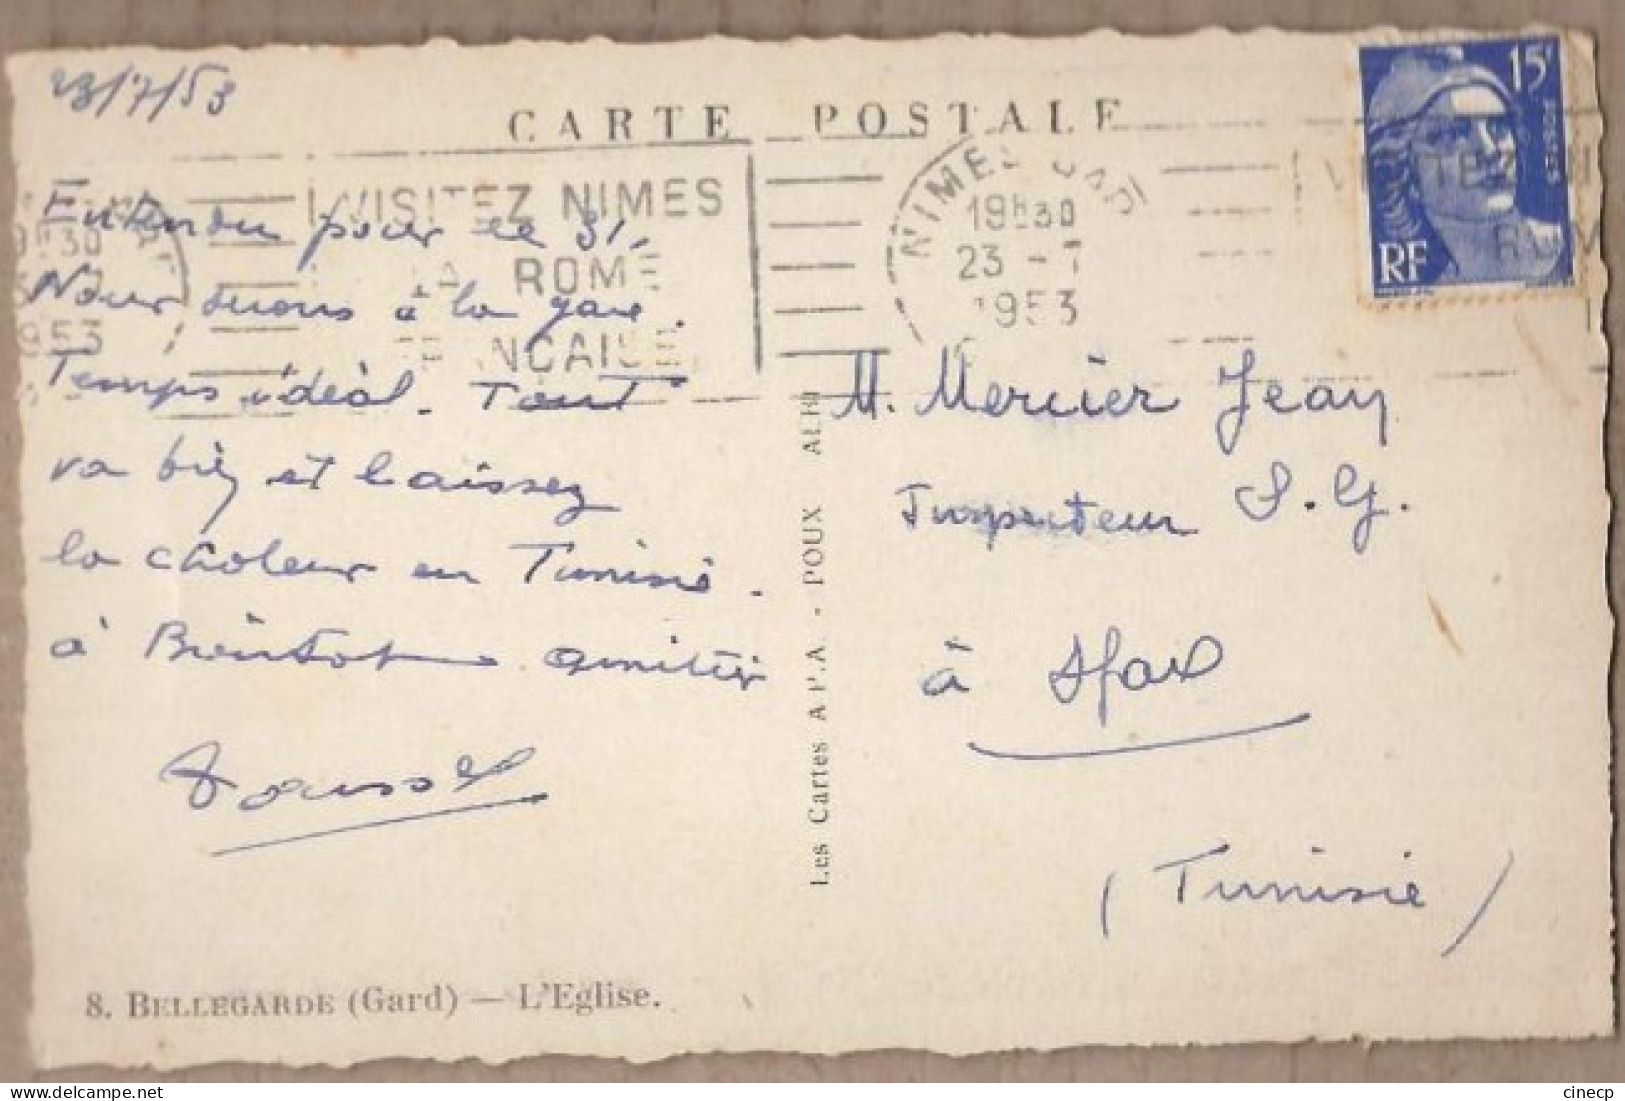 23/7/53
CARTE POSTALE
15F
POSTES
RF
VISITEZ NIMES
LA ROME
FRANÇAISE
NIMES GARE
19H30
23 - 7
1953
Entendu pour le 31.
Nous serons à la gare.
Temps idéal. Tout
va bien et laissez
la chaleur en Tunisie.
à Bientôt amitiés
Roussel
M. Mercier Jean
Inspecteur S.G.
à Sfax
(Tunisie)
Les Cartes A.P.A. - POUX ALBI
8. BELLEGARDE (Gard) — L'Eglise.
cinecp